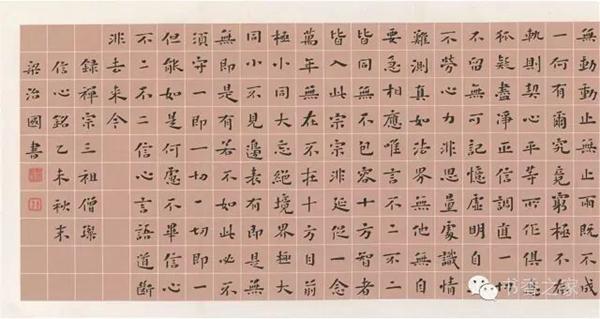 無動動止無止兩既不成
一何有爾究竟窮極不存
軌則契心平等所作俱息
狐疑盡淨正信調直一切
不留無可記憶虛明自
不勞心力非思量處識情
難測真如法界無他無自
要急相應唯言不二不二
皆同無不包容十方智者
皆入此宗宗非延促一念
萬年無在不在十方目前
極小同大忘絕境界極大
同小不見邊表有即是無
無即是有若不如此必不
須守一即一切一切即一
但能如是何慮不畢信心
不二不二信心言語道斷
非去來今
録禪宗三祖僧璨
信心銘乙未秋末
梁治國書
书香之家